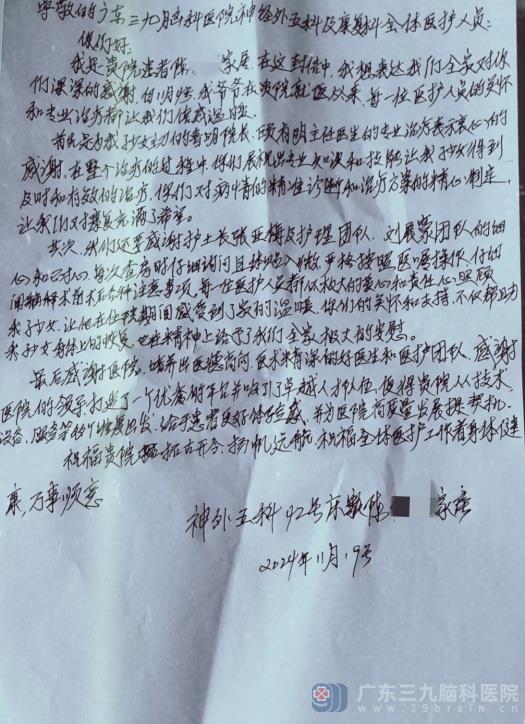 尊敬的广东三九脑科医院神经外五科及康复科全体医护人员:
你们好:
我是贵院患者陈 家属 在这封信中,我想表达我们全家对你
们深深的感谢,自11月9号,我爷爷在贵院就医以来,每一位医护人员的关怀
和专业治疗都让我们倍感温暖。
首先是为我少女主功的鲁明院长,顾有明主任医生的专业治疗表示衷心的
感谢,在整个治疗的过程中,你们展现出专业知识和技能让我少女得到
及时和有效的治疗,你们对病情的精准诊断和治疗方案的精心制定,
让我们对康复充满了希望。
其次,我们还要感谢护士长张亚梅及护理团队,刘展家团队的细
心和耐心每次查房时仔细询问且 严格按照医嘱操作,仔细
术前术后各种注意事项,每一位医护人员都以极大的爱心和责任心照顾
我少女,让他在住院期间感受到了家的温暖,你们的关怀和支持,不仅帮助
我少女身体上的恢复,也在精神上给予了我们全家极大的安慰。
最后感谢医院,培养出医德高尚,医术精湛的好医生和医护团队,感谢
医院的领导打造了一个优秀的平台并吸引了卓越人才们,使得贵院从技术
设备,服务等的个性展出发,给予患者更好体验感,并为医院高质量发展提契机.
祝福贵院 拓古开今,扬帆远航 祝福全体医护工作者身体健
康,万事顺意
神外五科 92号床 陈 家属
2024年11月19号
广东三九脑科医院
www.39brain.cn